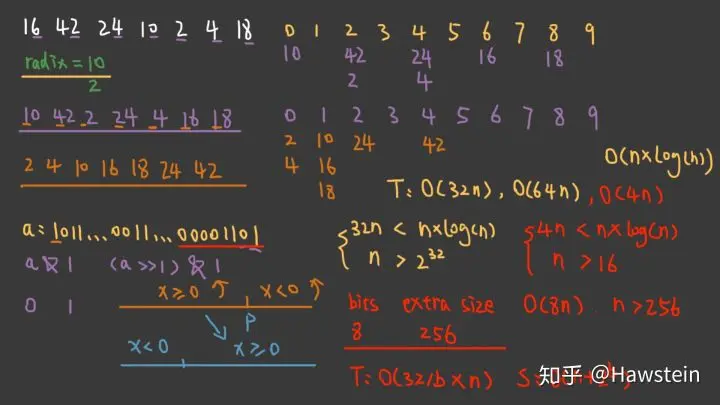 16 42 24 10 2 4 18
0 1 2 3 4 5 6 7 8 9
10 42 24 16 18
2 4
radix = 10
2
10 42 2 24 4 16 18
0 1 2 3 4 5 6 7 8 9
2 10 24 42
4 16
18
2 4 10 16 18 24 42
O(n×log(n))
T: O(32n), O(64n), O(4n)
a: 1011...0011...00001101
a & 1 (a >> 1) & 1
0 1
x≥0 ↑ x<0 ↑
P
x<0 x≥0
32n < n×log(n)
n > 2^32
4n < n×log(n)
n > 16
bits extra size O(8n) n>256
8 256
T: O(32/b × n) S:
知乎 @Hawstein